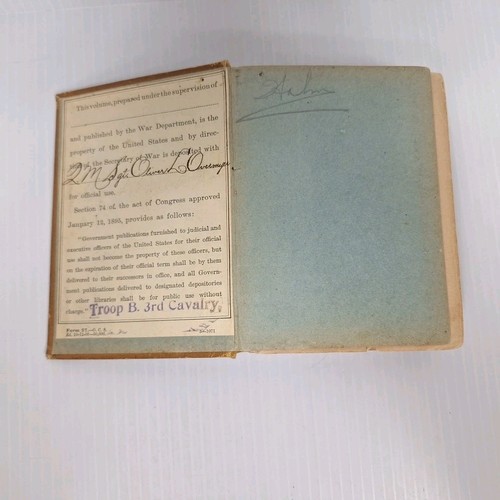 This volume, prepared under the supervision of
and published by the War Department, is the
property of the United States and by direc-
tion of the Secretary of War is deposited with
Q M Sgt Oliver L Overmyer
for official use.
Section 74 of the act of Congress approved
January 12, 1895, provides as follows:
"Government publications furnished to judicial and
executive officers of the United States for their official
use shall not become the property of these officers, but
on the expiration of their official term shall be by them
delivered to their successors in office, and all Govern-
ment publications delivered to designated depositories
or other libraries shall be for public use without
charge."
Troop B. 3rd Cavalry.